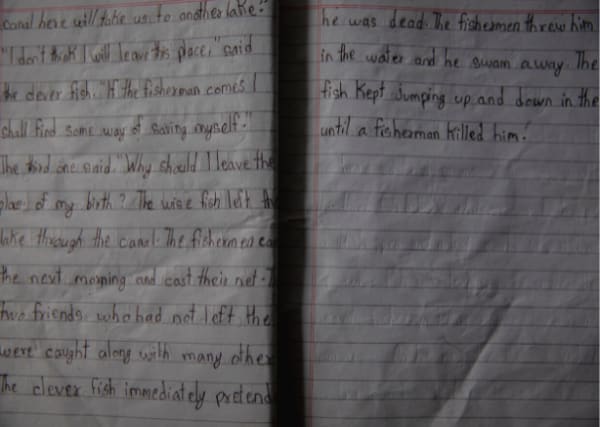 canal here will take us to another lake."
"I don't think I will leave this place," said
the clever fish. "If the fisherman comes I
shall find some way of saving myself."
The third one said. "Why should I leave the
place of my birth? The wise fish left
lake through the canal. The fishermen
the next morning and cast their net.
two friends, who had not left, the
were caught along with many other
The clever fish immediately pretend
he was dead. The fishermen threw him
in the water and he swam away. The
fish kept Jumping up and down in the
until a fisherman killed him.